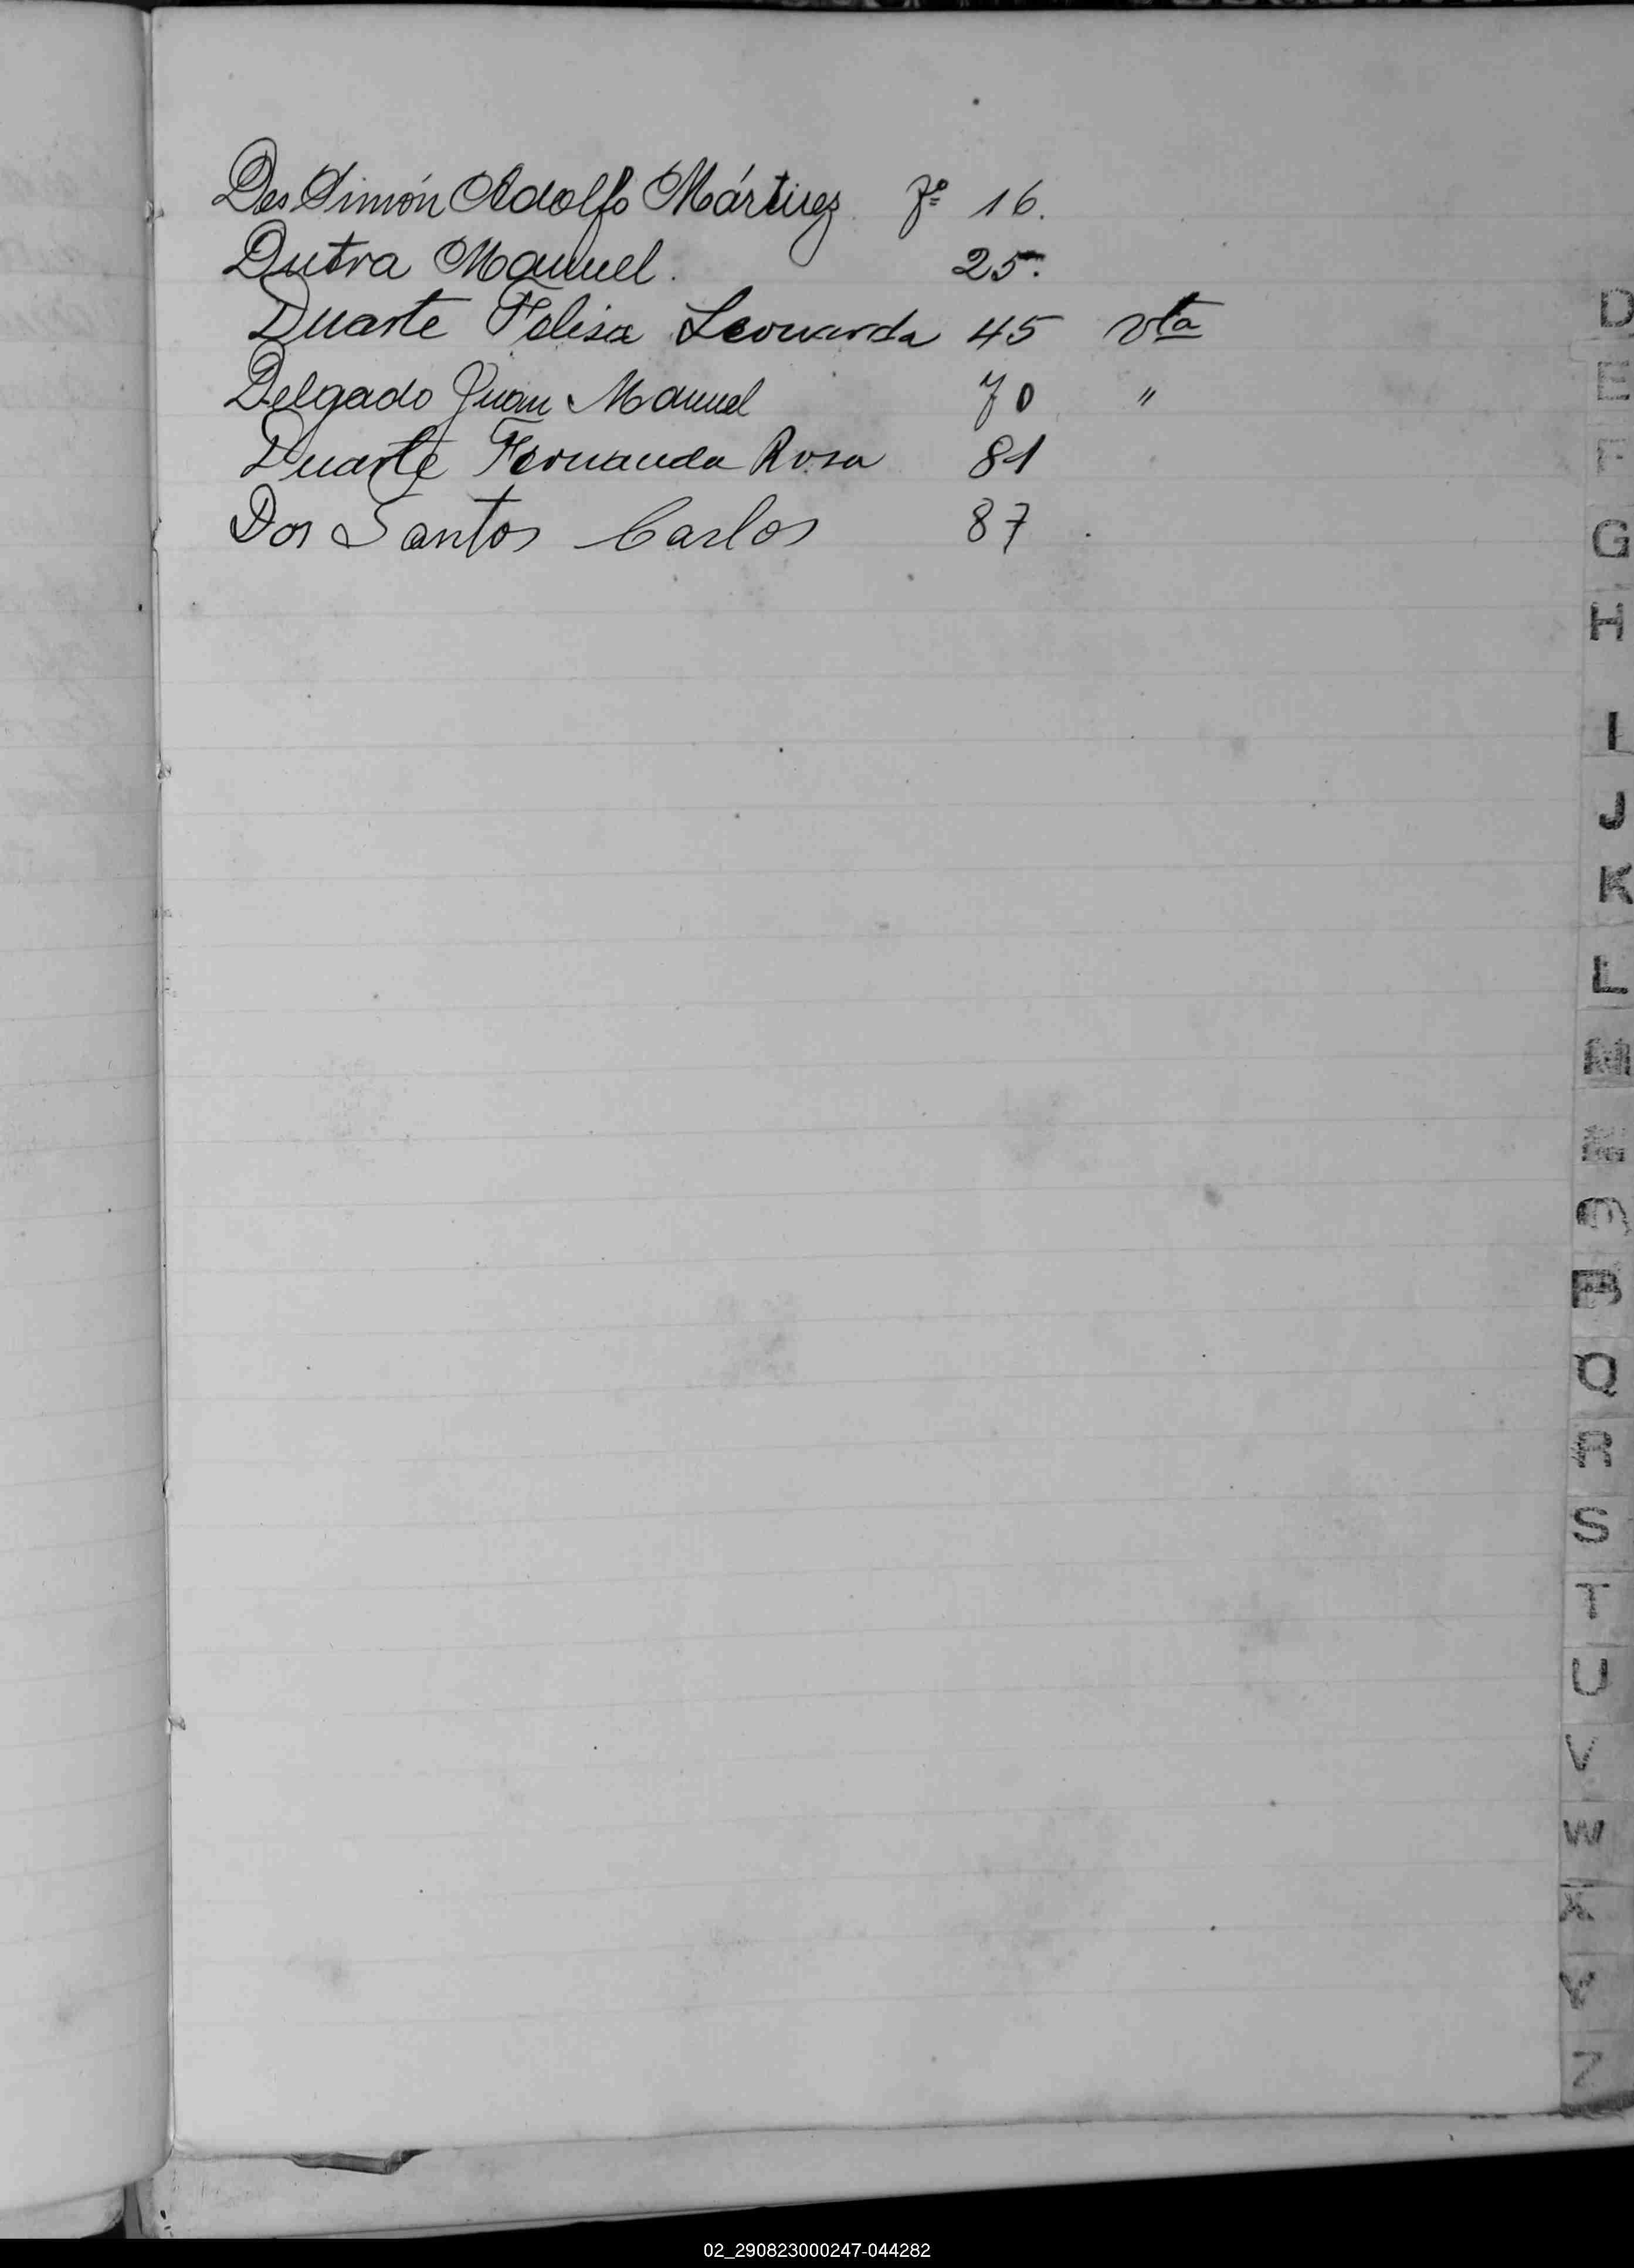 Des Simón Adolfo Mártirez fº 16.
Dutra Manuel. 25.
Duarte Felisa Leonarda 45 vta
Delgado Juan Manuel 70 "
Duarte Fernanda Rosa 81
Dos Santos Carlos 87
D
E
F
G
H
I
J
K
L
M
N
O
P
Q
R
S
T
U
V
W
X
Y
Z
02_290823000247-044282